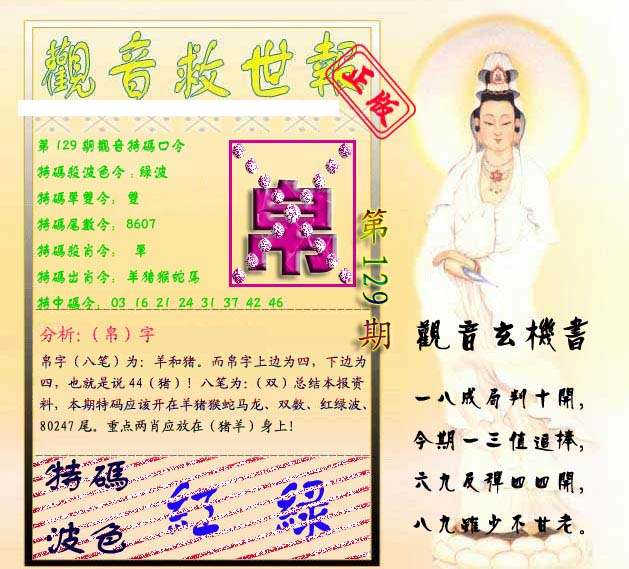 觀音救世報
正版
第129期觀音特碼口令
特碼殺波色令：綠波
特碼單雙令： 雙
特碼尾數令： 8607
特碼殺肖令： 單
特碼出肖令： 羊猪猴蛇馬
特中碼令： 03 16 21 24 31 37 42 46
帛
第129期
分析:（帛）字
帛字（八笔）为：羊和猪。而帛字上边为四，下边为
四，也就是说44（猪）！八笔为：（双）总结本报资
料，本期特码应该开在羊猪猴蛇马龙、双数、红绿波、
80247尾。重点两肖应放在（猪羊）身上！
特碼
波色
紅 綠
觀音玄機書
一八成局判十開，
今期一三值追捧，
六九反彈四四開，
八九雖少不甘老。